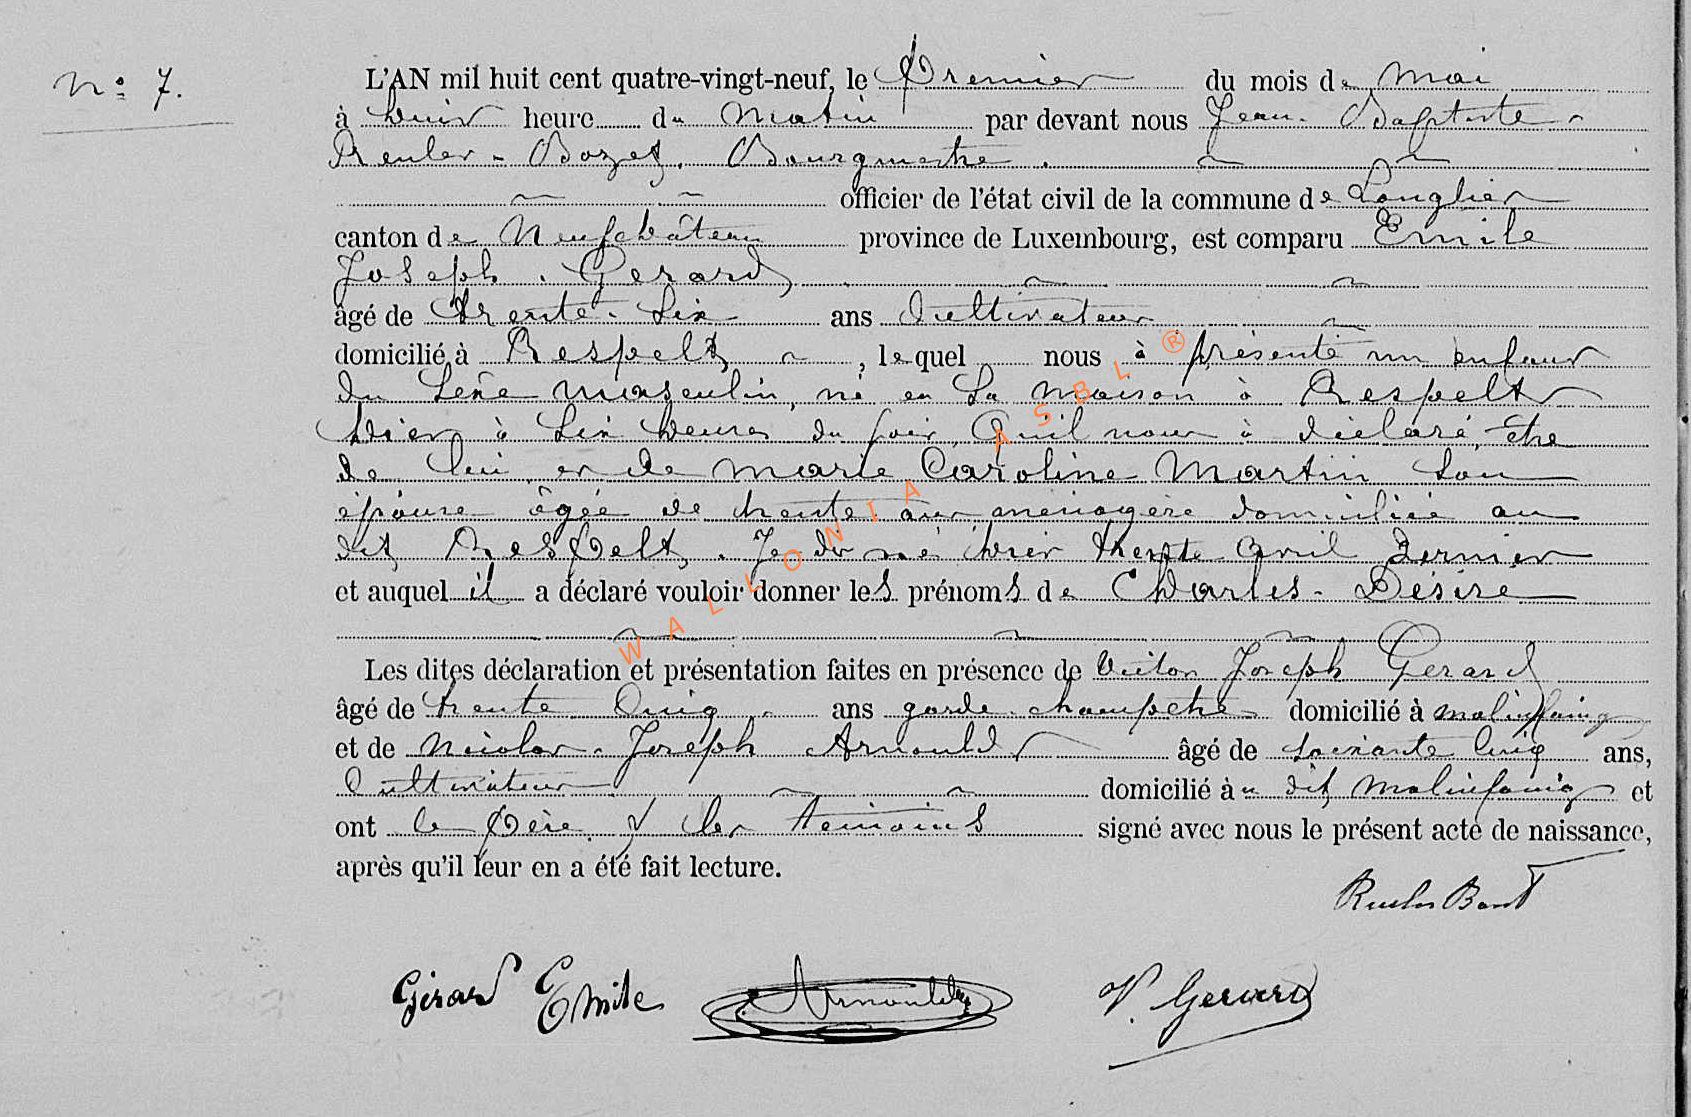 N° 7.
L'AN mil huit cent quatre-vingt-neuf, le Premier du mois de Mai
à huit heure du Matin par devant nous Jean-Baptiste
Reuler-Bozet, Bourgmestre
officier de l'état civil de la commune de Longlier
canton de Neufchâteau province de Luxembourg, est comparu Emile
Joseph Gerard
âgé de trente-six ans Cultivateur
domicilié à Respelt, lequel nous à présenté un enfant
du Sexe masculin, né en Sa maison à Respelt
hier à six heures du soir, Qu'il nous à déclaré, être
de lui et de Marie Caroline Martin son
épouse âgée de trente ans ménagère domiciliée au
dit Respelt. Je dis né hier trente avril dernier
et auquel il a déclaré vouloir donner les prénoms de Charles-Désiré
Les dites déclaration et présentation faites en présence de Victor Joseph Gerard
âgé de trente Cinq ans garde-champêtre domicilié à Molinfaing
et de Nicolas-Joseph Arnould âgé de soixante Cinq ans,
Cultivateur domicilié au dit Molinfaing et
ont le père & les témoins signé avec nous le présent acte de naissance,
après qu'il leur en a été fait lecture.
Gérard Emile Arnould V. Gerard
WALLONIA ASBL ®